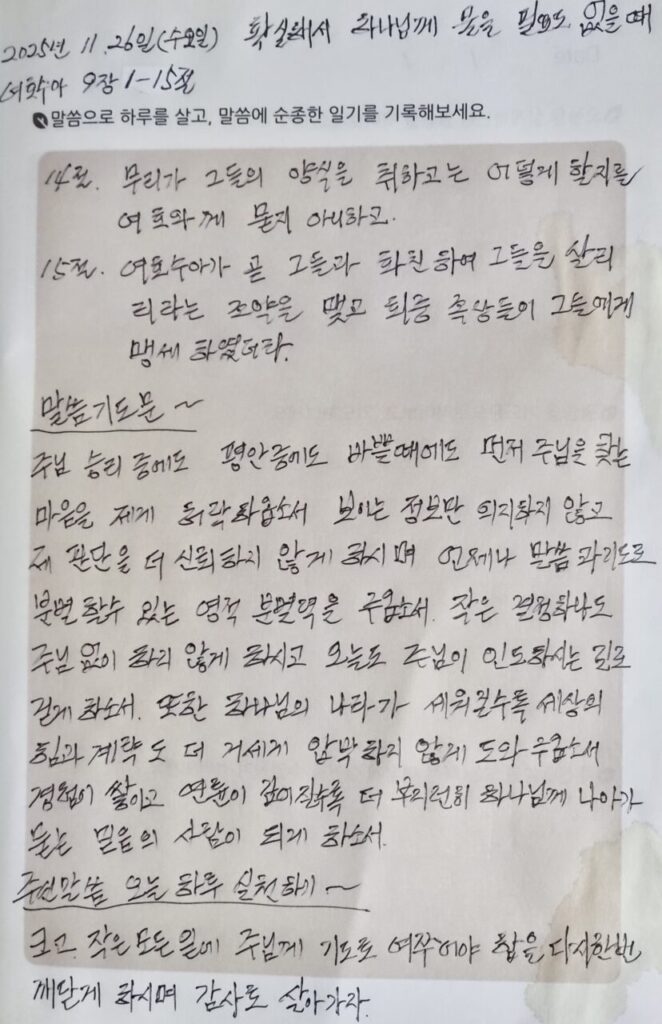 2025년 11.26일(수요일) 확실해서 하나님께 물을 필요도 없을때
여호수아 9장 1-15절
말씀으로 하루를 살고, 말씀에 순종한 일기를 기록해보세요.
14절. 무리가 그들의 양식을 취하고는 어떻게 할지를
여호와께 묻지 아니하고.
15절. 여호수아가 곧 그들과 화친하여 그들을 살리
리라는 조약을 맺고 회중 족장들이 그들에게
맹세 하였더라.
말씀기도문 ~
주님 승리 중에도 평안중에도 바쁠때에도 먼저 주님을 찾는
마음을 제게 허락하옵소서 보이는 정보만 의지하지 않고
제 판단을 더 신뢰하지 않게 하시며 언제나 말씀과 기도로
분별 할수 있는 영적 분별력을 주옵소서. 작은 결정하나도
주님 없이 하지 않게 하시고 오늘도 주님이 인도하시는 길로
걷게 하소서. 또한 하나님의 나라가 세워질수록 세상의
힘과 계략도 더 거세게 압박하지 않게 도와주옵소서
경험이 쌓이고 연륜이 깊어질수록 더 부지런히 하나님께 나아가
묻는 믿음의 사람이 되게 하소서.
주신말씀 오늘 하루 실천하기 ~
크고 작은 모든 일에 주님께 기도로 여쭈어야 함을 다시한번
깨닫게 하시며 감사로 살아가자.